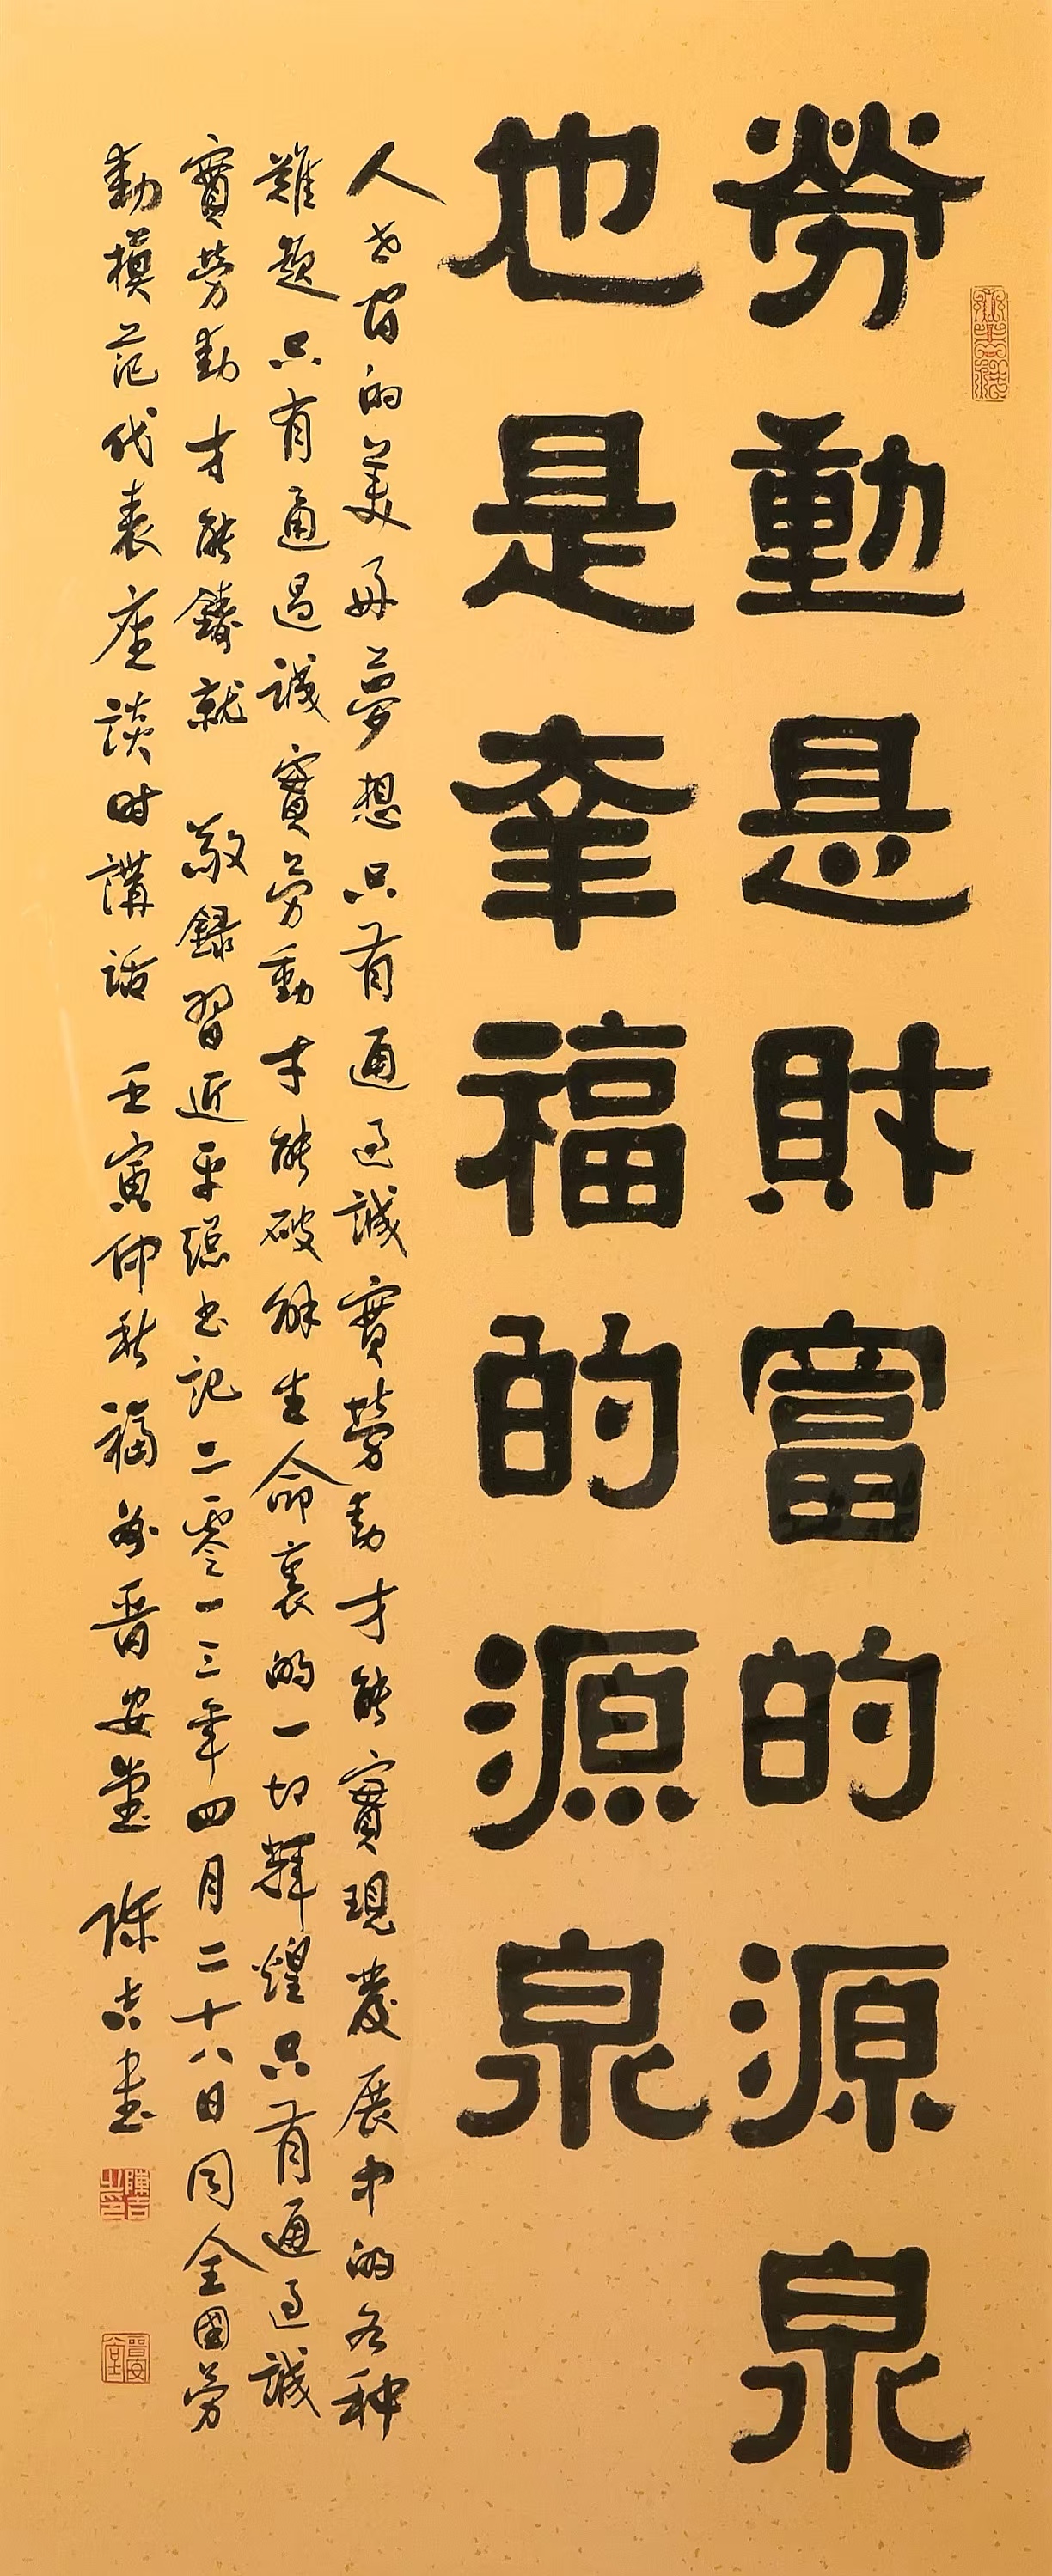 勞動是財富的源泉
也是幸福的源泉
人世間的美好夢想只有通過誠實勞動才能實現發展中的各種
難題只有通過誠實勞動才能破解生命裏的一切輝煌只有通過誠
實勞動才能鑄就 敬錄習近平總書記二零一三年四月二十八日同全國勞
動模范代表座談时講話 壬寅仲秋福州晋安堂 陳吉書
陳吉之印
晉安堂